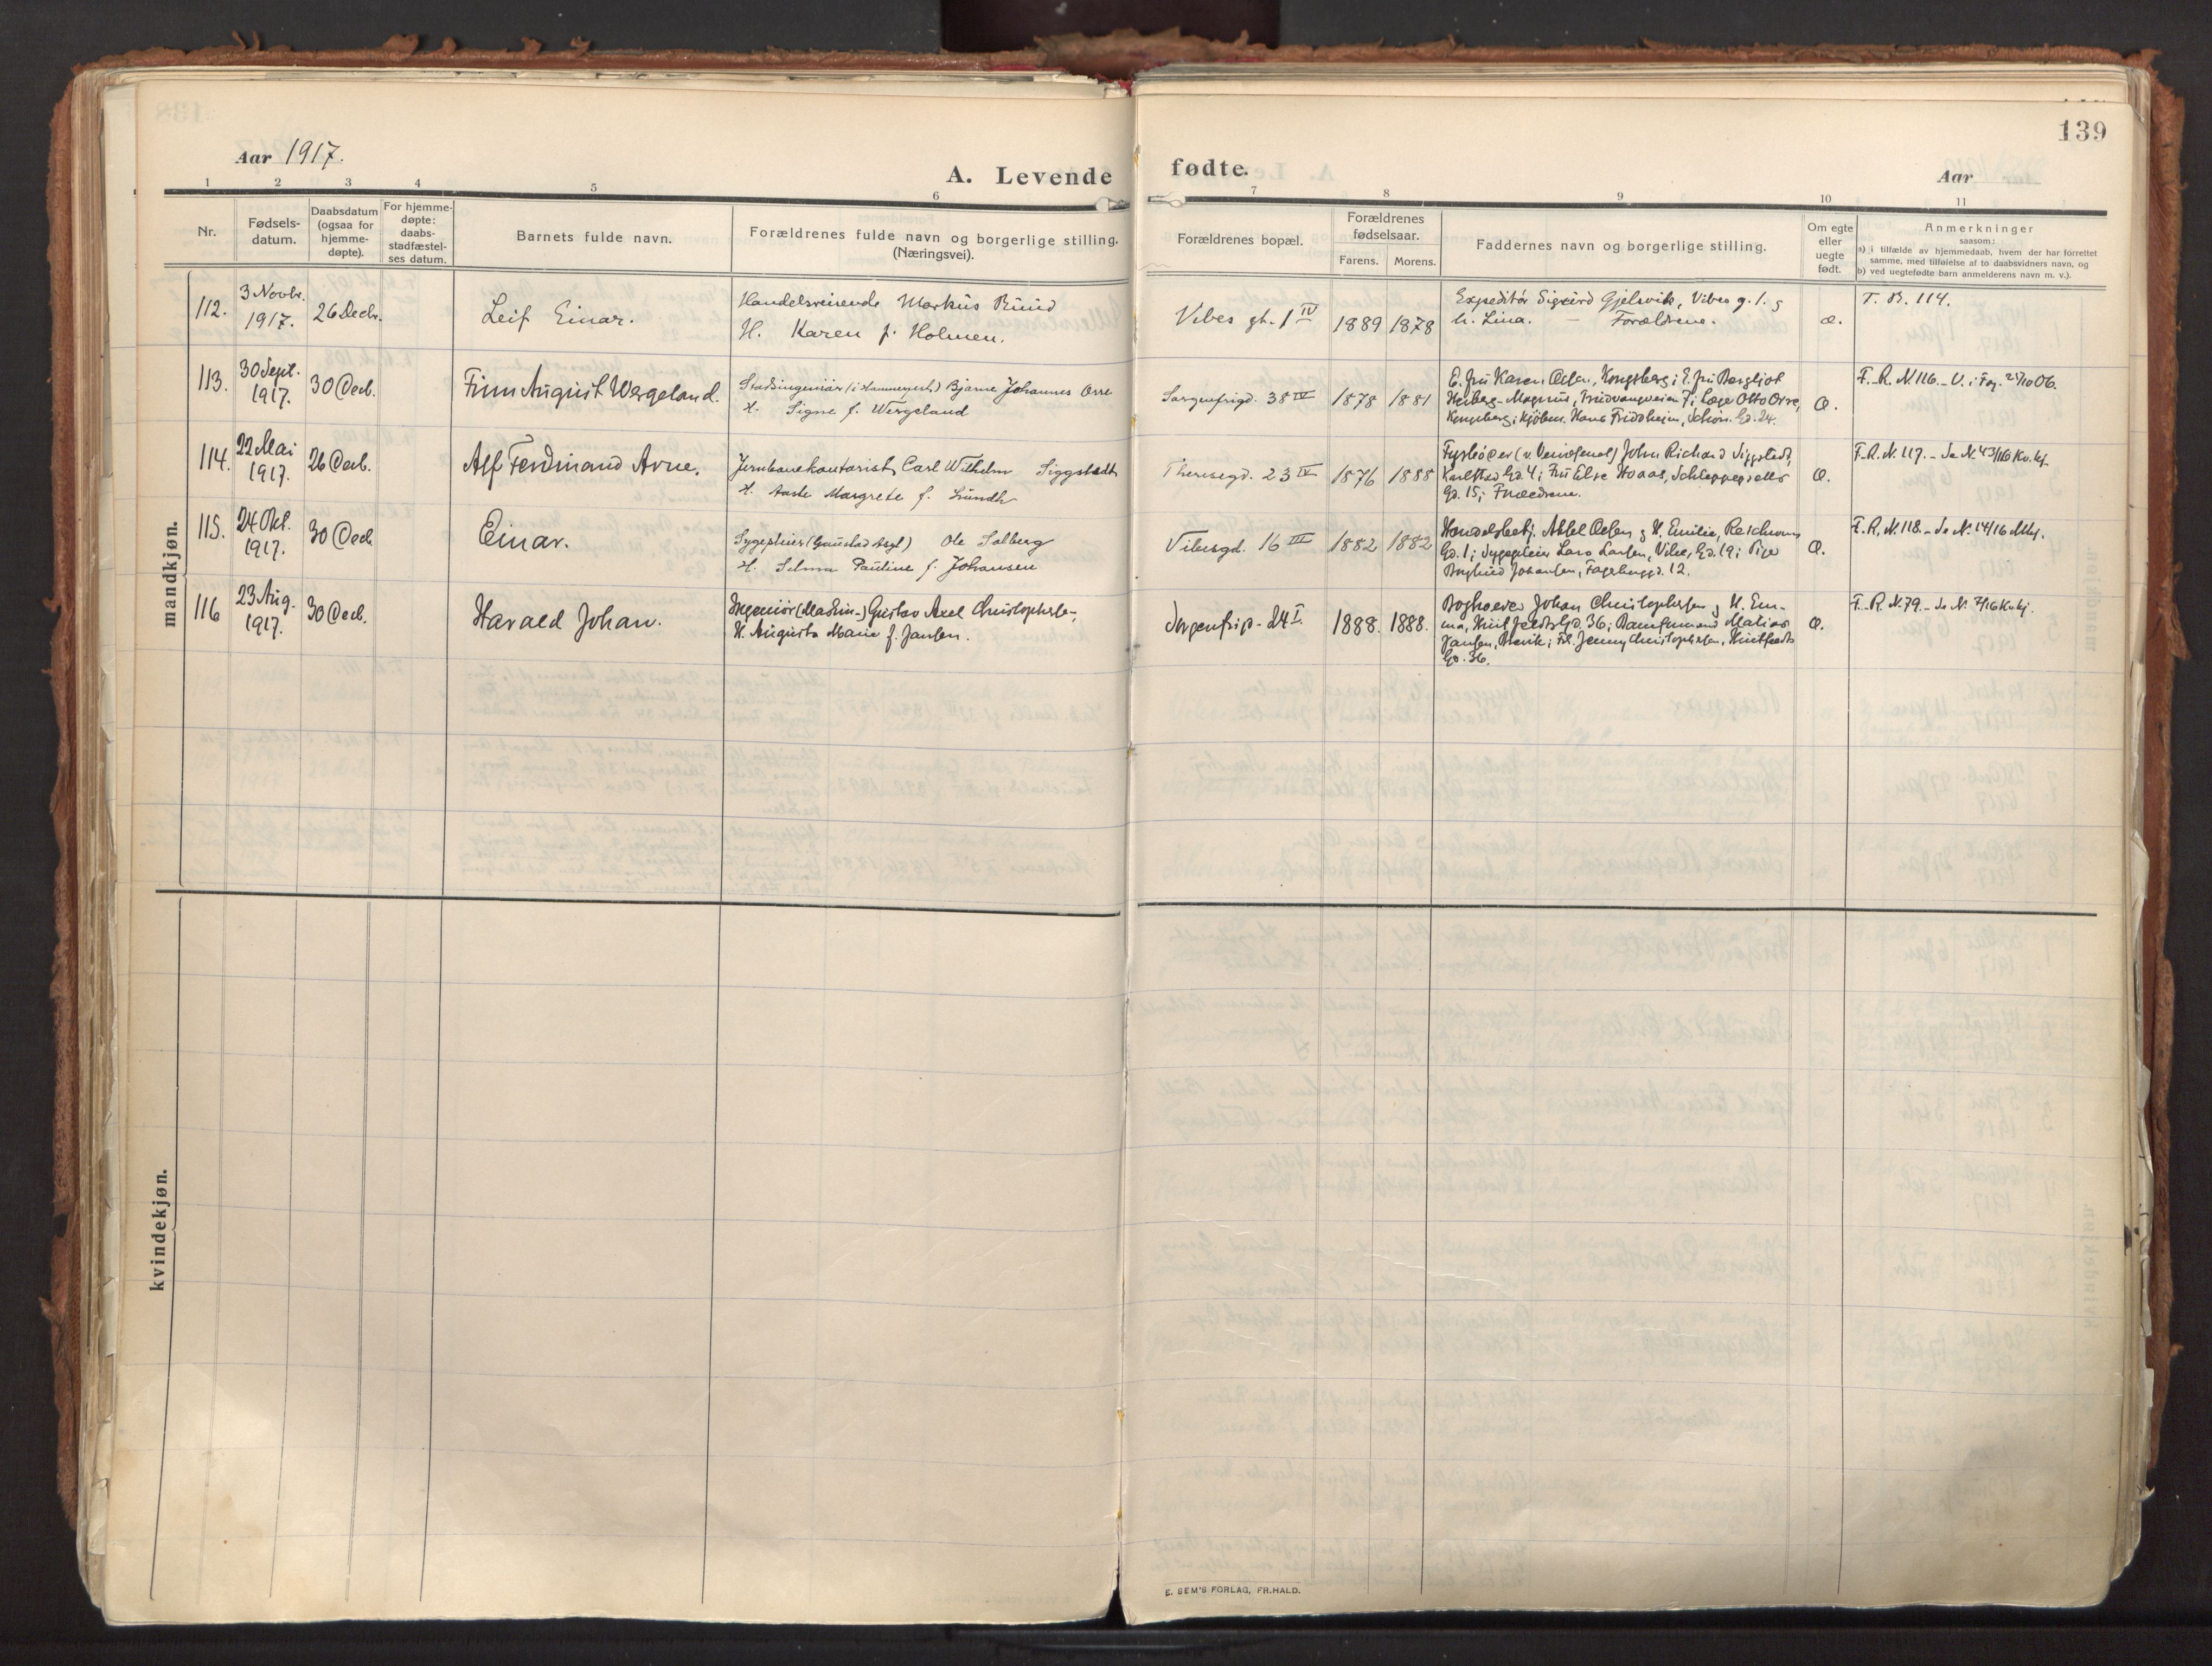 139
Aar 1917.
A. Levende fødte.
Aar
1 2 3 4 5 6 7 8 9 10 11
Nr.
Fødsels-
datum.
Daabsdatum
(ogsaa for
hjemme-
døpte).
For hjemme-
døpte:
daabs-
stadfæstel-
ses datum.
Barnets fulde navn.
Forældrenes fulde navn og borgerlige stilling.
(Næringsvei).
Forældrenes bopæl.
Forældrenes
fødselsaar.
Farens. Morens.
Faddernes navn og borgerlige stilling.
Om egte
eller
uegte
født.
Anmerkninger
saasom:
a) i tilfælde av hjemmedaab, hvem der har forrettet
samme, med tilføielse af to daabsvidners navn, og
b) ved uegtefødte barn anmelderens navn m. v.).
mandkjøn.
112.
3 Novbr.
1917.
26 Decbr.
Leif Einar.
Handelsreisende Markus Ruud
H. Karen f. Holmen.
Vibes gt. 1 IV
1889 1878
Expeditør Sigurd Gjelsvik, Vibes g. 1. og
h. Lina. — Forældrene.
æ.
F. R. 114.
113.
30 Sept.
1917.
30 Decb.
Finn August Wergeland.
Stadsingeniør (i Hammerfest) Bjarne Johannes Orre
H. Signe f. Wergeland
Sorgenfrigd. 38 IV
1878 1881
E. fru Karen Olsen, Kongsberg; E. fru Bergljot
Heiberg-Magnus, Trudvangveien 7; Læge Otto Orre,
Kongsberg; Kjøbm. Hans Fridheim, Schøn. Gd. 24.
Æ.
F. R. N. 116. - V. i Fag. 25/10 06.
114.
22 Mai
1917.
26 Decb.
Alf Ferdinand Arne.
Jernbanekontorist, Carl Wilhelm Siggstedt
H. Aaste Margrete f. Lundh
Theresegd. 23 IV
1876 1888
Fyrbøder John Richard Siggstedt,
Karlstad Gd. 4; Fru Else Haaas, Schleppegrells
Gd. 15; Forældrene.
Æ.
F. R. N. 117. - Se N. 43/16 Kv. kj.
115.
24 Okt.
1917.
30 Decb.
Einar.
Sygepleier (Gaustad Asyl) Ole Solberg
H. Selma Pauline f. Johansen
Vibesgd. 16 III
1882 1882
Handelsbetj. Aksel Olsen og H. Emilie, Reichweins
Gd. 1; Sygepleier Lars Larsen, Vibes Gd. 19; Pige
Borghild Johansen, Fagerborggd. 12.
Æ.
F. R. N. 118. - Se N. 14/16 Mkj.
116
23 Aug.
1917.
30 Decb.
Harald Johan.
Ingeniør (Maskin-) Gustav Axel Christophersen,
H. Augusta Marie f. Jansen.
Sorgenfrigd. 24 I.
1888. 1888.
Bogholder Johan Christophersen og H. Em-
ma, Huitfeldts Gd. 36; Mathias
Jansen, Frk. Jenny Christophersen, Huitfeldts
Gd. 36.
Æ.
F. R. N. 79. - Se N. 7/16 Kv. kj.
kvindekjøn.
E. SEM'S FORLAG, FR.HALD.